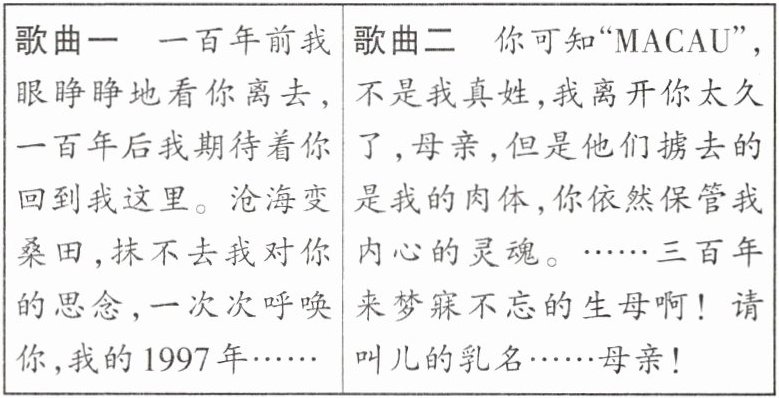 歌曲一 一百年前我
眼睁睁地看你离去，
一百年后我期待着你
回到我这里。沧海变
桑田，抹不去我对你
的思念，一次次呼唤
你，我的1997年……
歌曲二 你可知“MACAU”，
不是我真姓，我离开你太久
了，母亲，但是他们掳去的
是我的肉体，你依然保管我
内心的灵魂。……三百年
来梦寐不忘的生母啊！请
叫儿的乳名……母亲！